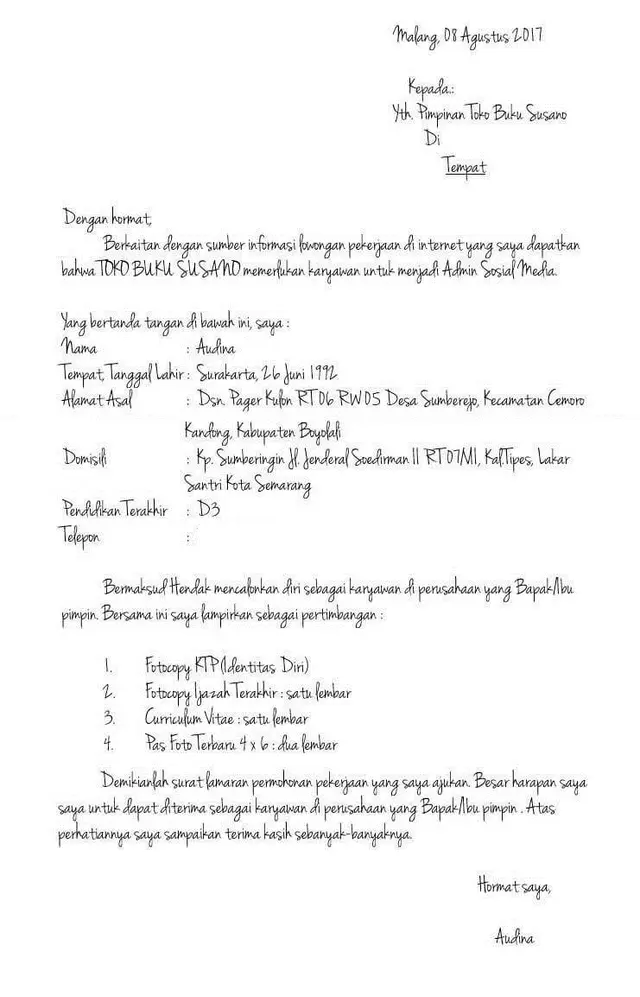 Malang, 08 Agustus 2017
Kepada.:
Yth. Pimpinan Toko Buku Susano
Di
Tempat
Dengan hormat,
Berkaitan dengan sumber informasi lowongan pekerjaan di internet yang saya dapatkan
bahwa TOKO BUKU SUSANO memerlukan karyawan untuk menjadi Admin Sosial Media.
Yang bertanda tangan di bawah ini, saya :
Nama : Audina
Tempat, Tanggal Lahir : Surakarta, 26 Juni 1992
Alamat Asal : Dsn. Pager Kulon RT06 RW05 Desa Sumberejo, Kecamatan Cemoro
Kandong, Kabupaten Boyolali
Domisili : Kp. Sumberingin Jl. Jenderal Soedirman II RT07/VI, Kal.Tipes, Lakar
Santri Kota Semarang
Pendidikan Terakhir : D3
Telepon :
Bermaksud Hendak mencalonkan diri sebagai karyawan di perusahaan yang Bapak/Ibu
pimpin. Bersama ini saya lampirkan sebagai pertimbangan :
1. Fotocopy KTP (Identitas Diri)
2. Fotocopy Ijazah Terakhir : satu lembar
3. Curriculum Vitae : satu lembar
4. Pas Foto Terbaru 4 x 6 : dua lembar
Demikianlah surat lamaran permohonan pekerjaan yang saya ajukan. Besar harapan saya
saya untuk dapat diterima sebagai karyawan di perusahaan yang Bapak/Ibu pimpin . Atas
perhatiannya saya sampaikan terima kasih sebanyak-banyaknya.
Hormat saya,
Audina